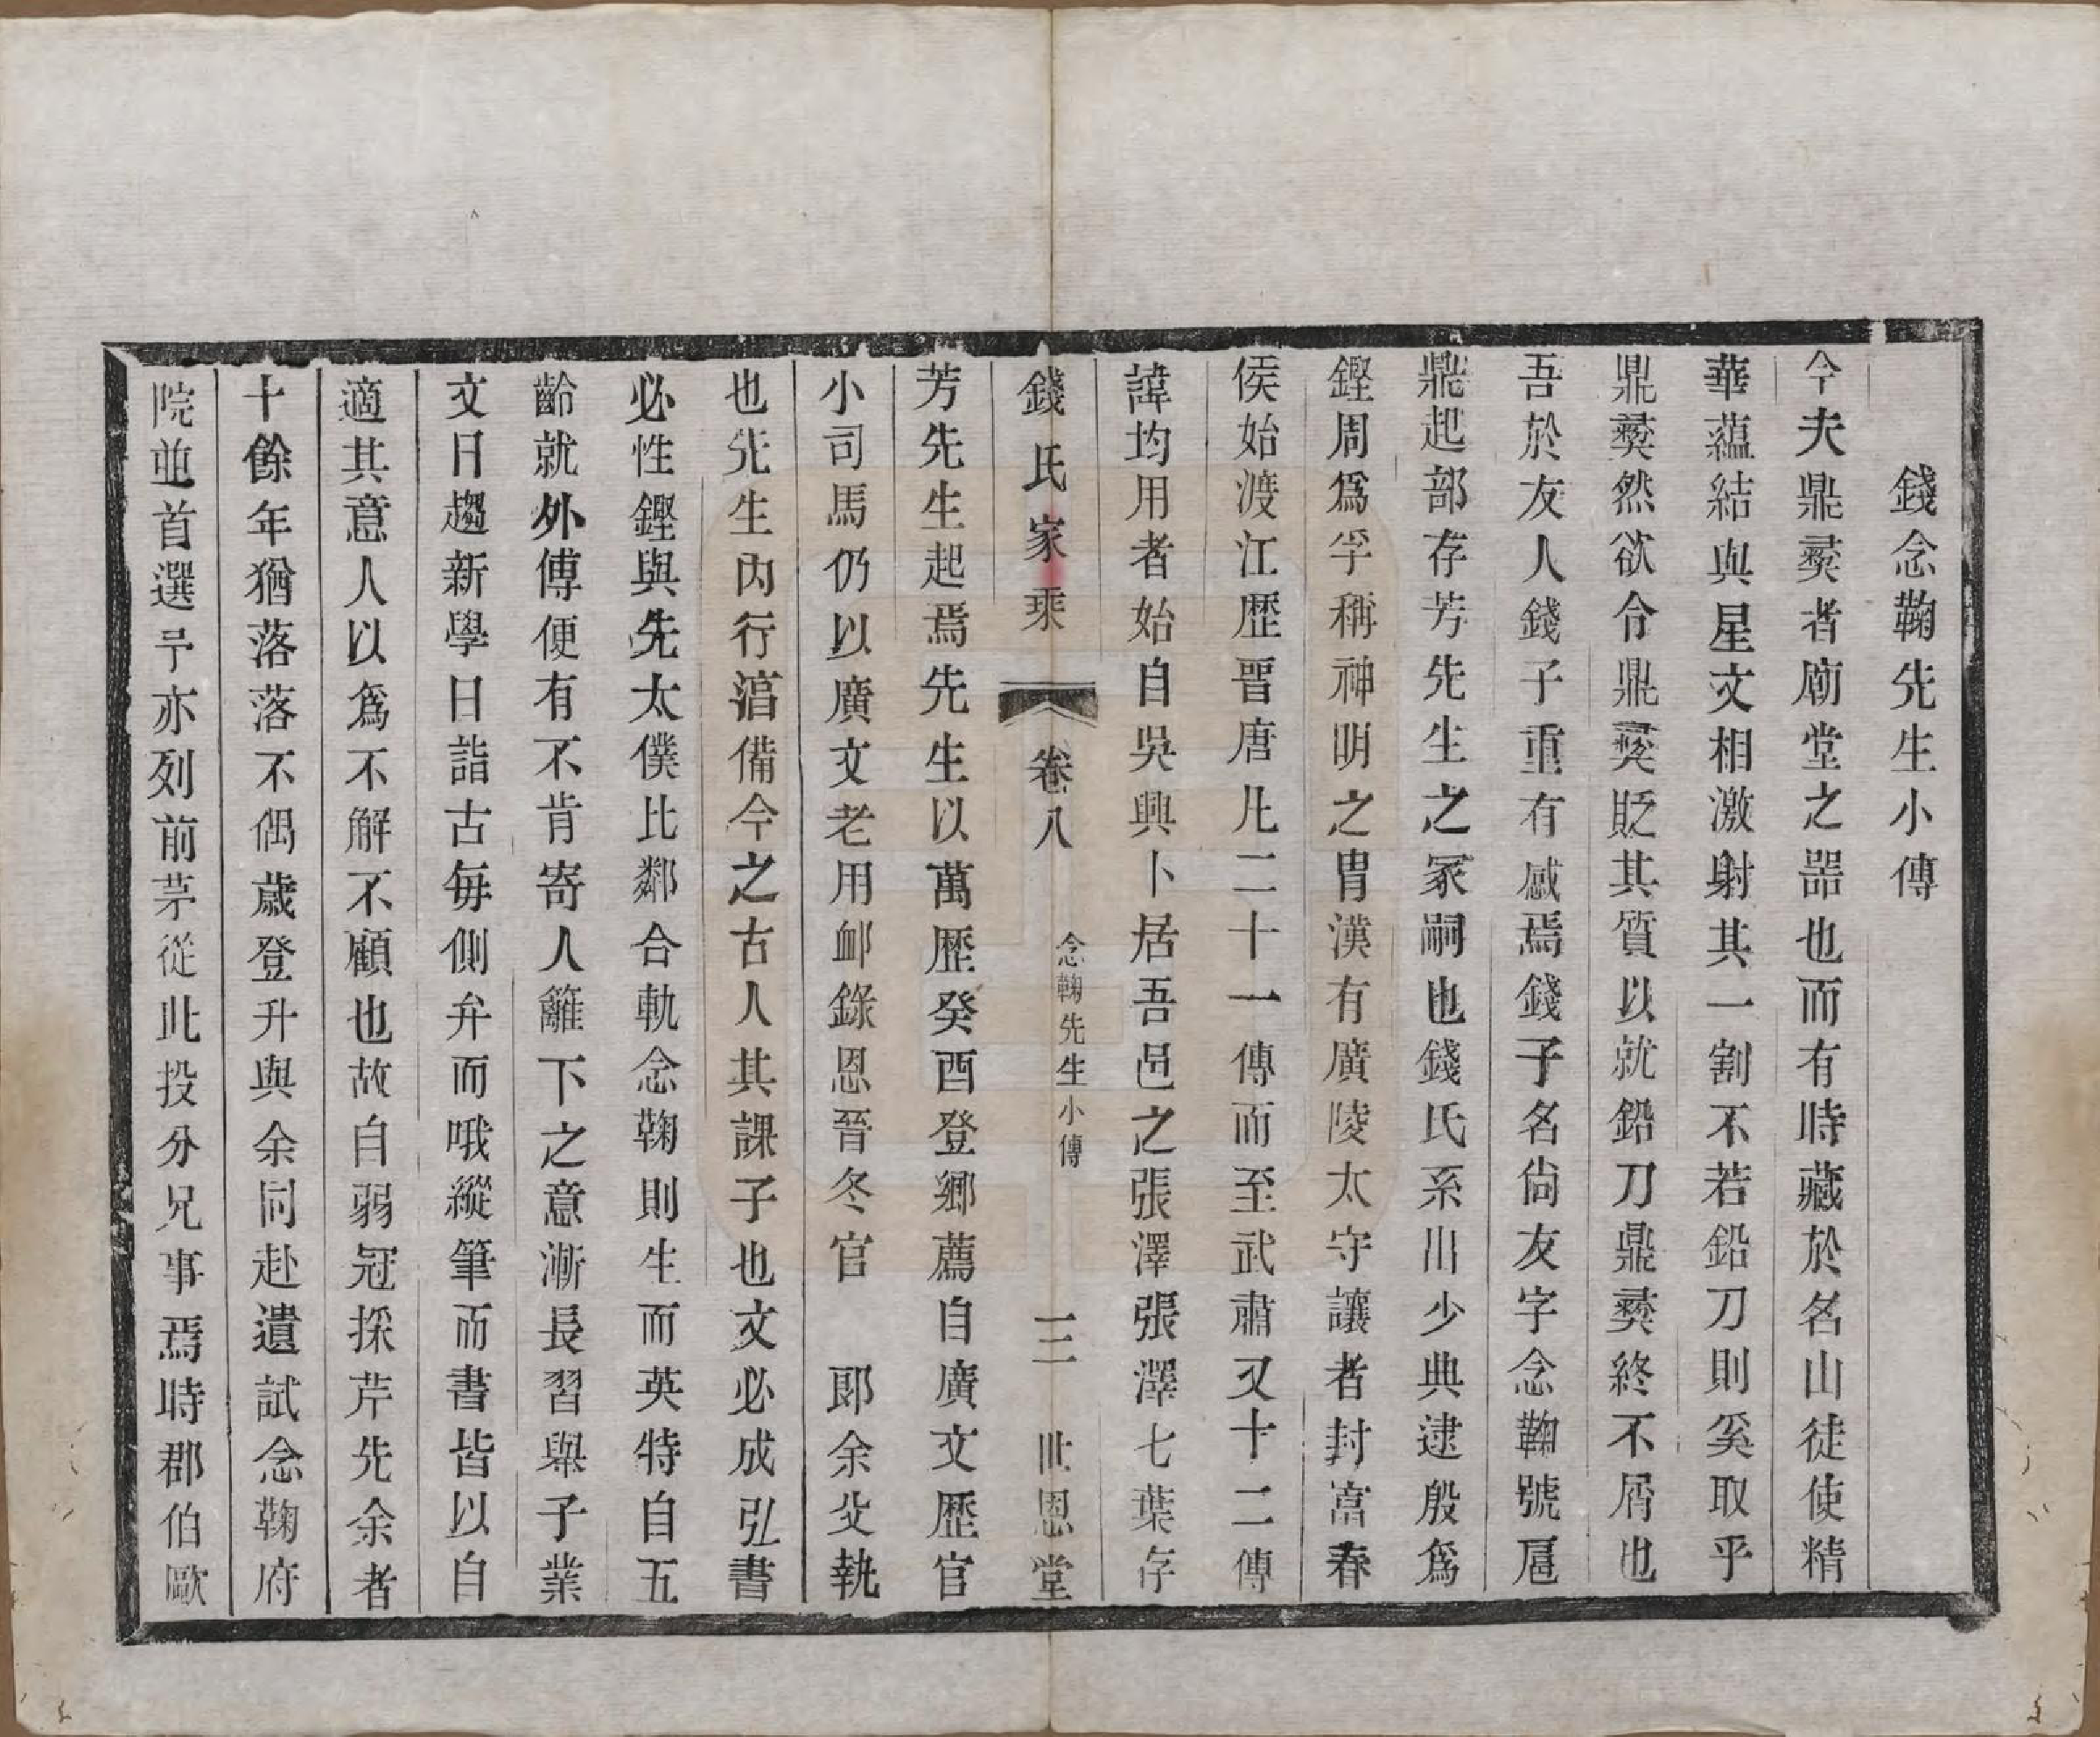 錢念鞠先生小傳
今夫鼎彞者廟堂之噐也而有時藏於名山徒使精
華蘊結與星文相激射其一割不若鉛刀則奚取乎
鼎彞然欲令鼎彞貶其質以就鉛刀鼎彞終不屑也
吾於友人錢子重有感焉錢子名尙友字念鞠號扈
鼎起部存芳先生之冢嗣也錢氏系川少典逮殷爲
鏗周爲孚稱神明之冑漢有廣陵太守讓者封富春
侯始渡江歷晋唐凡二十一傳而至武肅又十二傳
諱均用者始自吳興卜居吾邑之張澤張澤七葉存
錢氏家乘 卷八 念鞠先生小傳 三 世恩堂
芳先生起焉先生以萬歷癸酉登鄉薦自廣文歷官
小司馬仍以廣文老用䘏錄恩晉冬官 郎余父執
也先生內行湻備今之古人其課子也文必成弘書
必性鏗與先太僕比鄰合軌念鞠則生而英特自五
齡就外傅便有不肯寄人籬下之意漸長習舉子業
文日趨新學日詣古每側弁而哦縱筆而書皆以自
適其意人以爲不解不顧也故自弱冠採芹先余者
十餘年猶落落不偶歲登升與余同赴遺試念鞠府
院並首選予亦列前茅從此投分兄事焉時郡伯歐